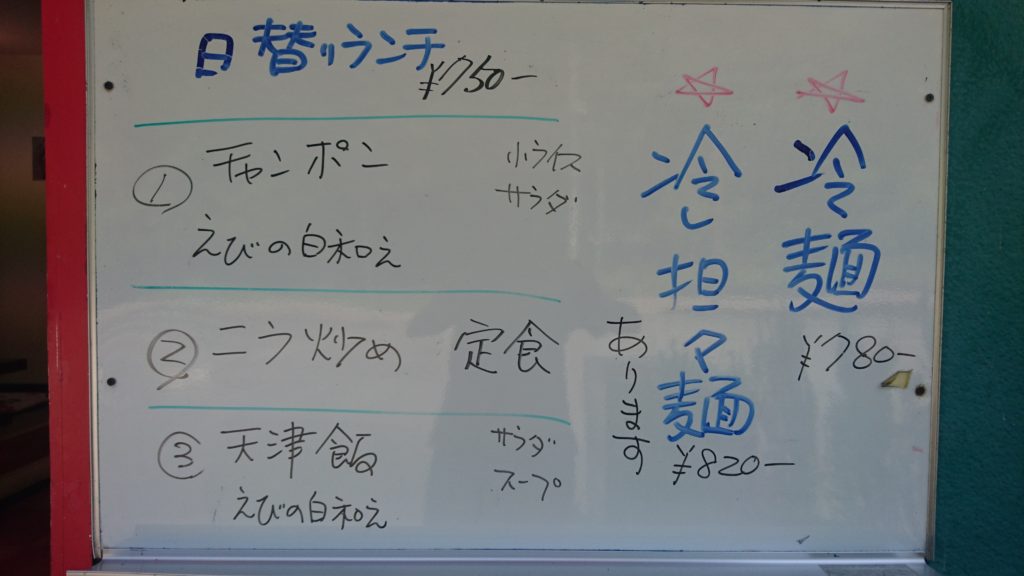 日替りランチ
¥750-
① チャンポン
小ライス
サラダ
えびの白和え
② ニラ炒め 定食
③ 天津飯
サラダ
スープ
えびの白和え
☆冷麺
¥780-
☆冷し担々麺
¥820-
あります